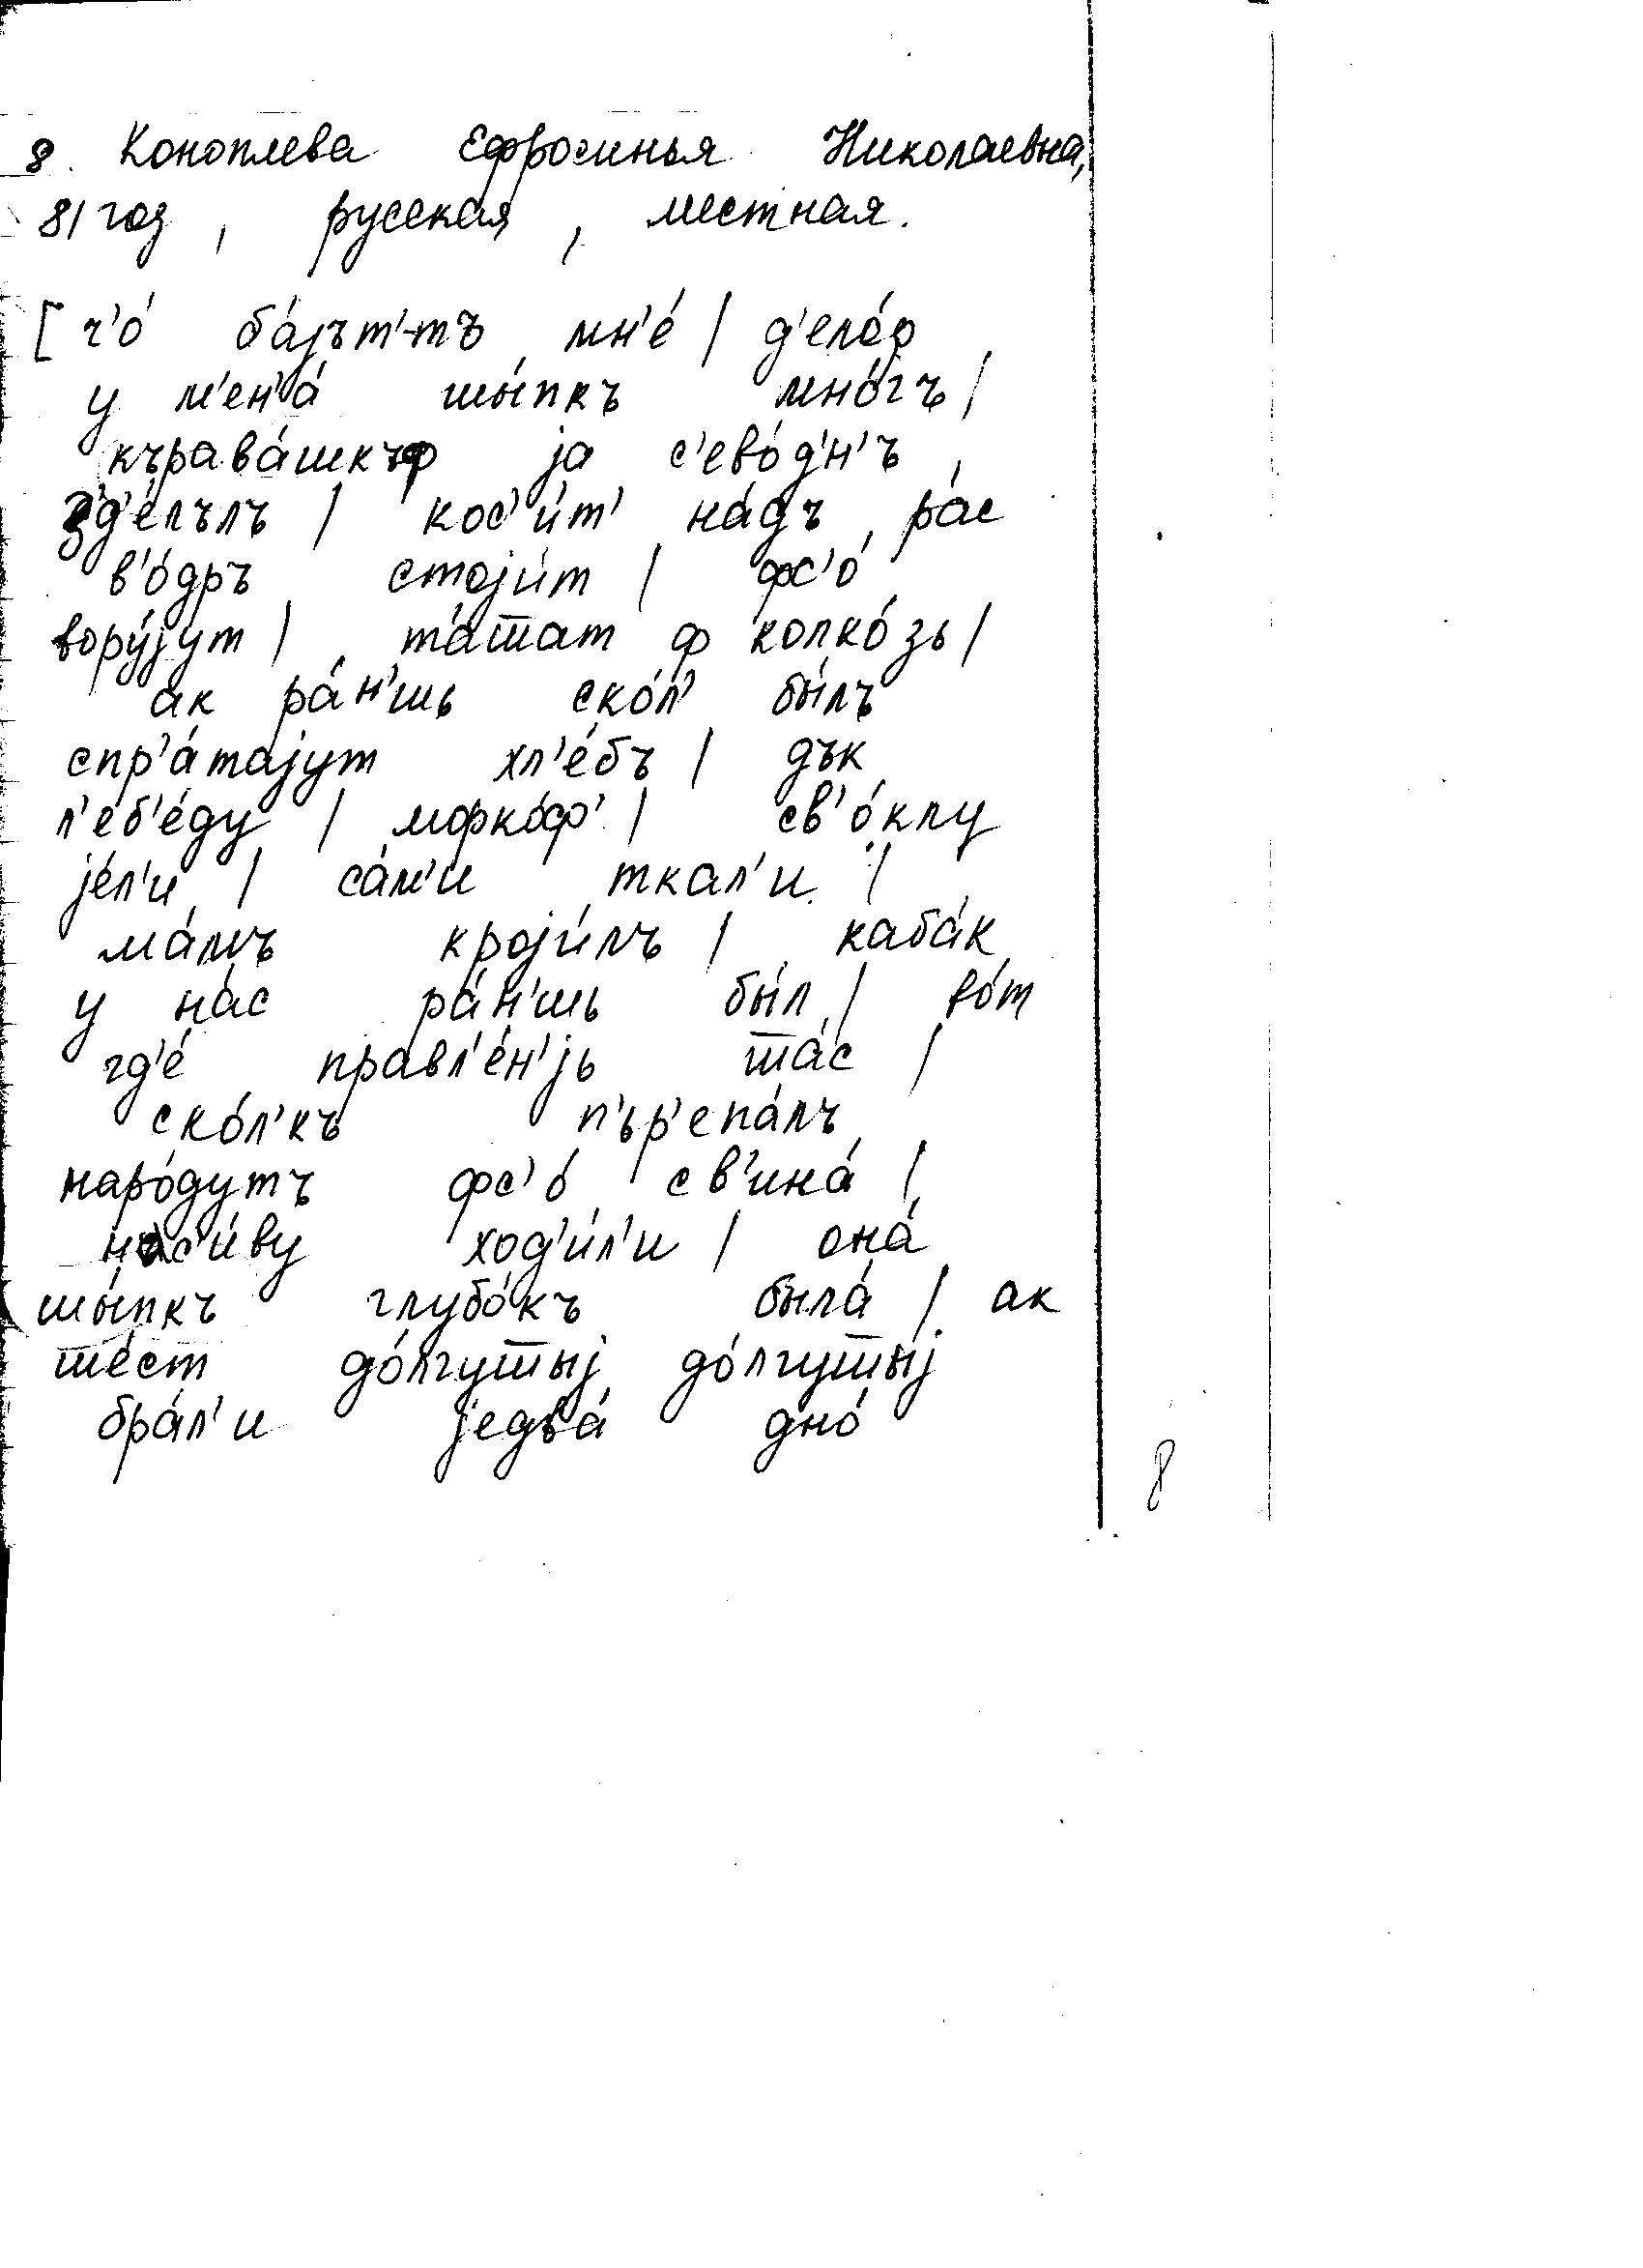 8. Коноплева Ефросинья Николаевна,
81 год, русская, местная.
[ч'о́ ба́јът'-тъ мн'е́ | д'ело́ф
у м'ен'а́ шы́пкъ мно́гъ |
кърава́шкъф ја с'ево́д'н'ъ
з'д'е́лълъ | кос'и́т' на́дъ, ра́с
в'о́дръ стоји́т | фс'о́
вору́јут | та́шшат ф колхо́зь |
ак ра́н'шь ско́л' бы́лъ
спр'а́тајут хл'е́бъ | дък
л'еб'еду́ | морко́ф' | св'о́клу
је́л'и | са́м'и тка́л'и |
ма́мъ кроји́лъ | каба́к
у на́с ра́н'шь бы́л | во́т
гд'е́ правл'е́н'јь ша́с |
ско́л'къ п'ър'епа́лъ
наро́дутъ фс'о́ св'ина́ |
нас'и́ву ход'и́л'и | она́
шы́пкъ глубо́къ была́ | ак
ше́ст до́лгушшыј до́лгушшыј
бра́л'и једва́ дно́
8